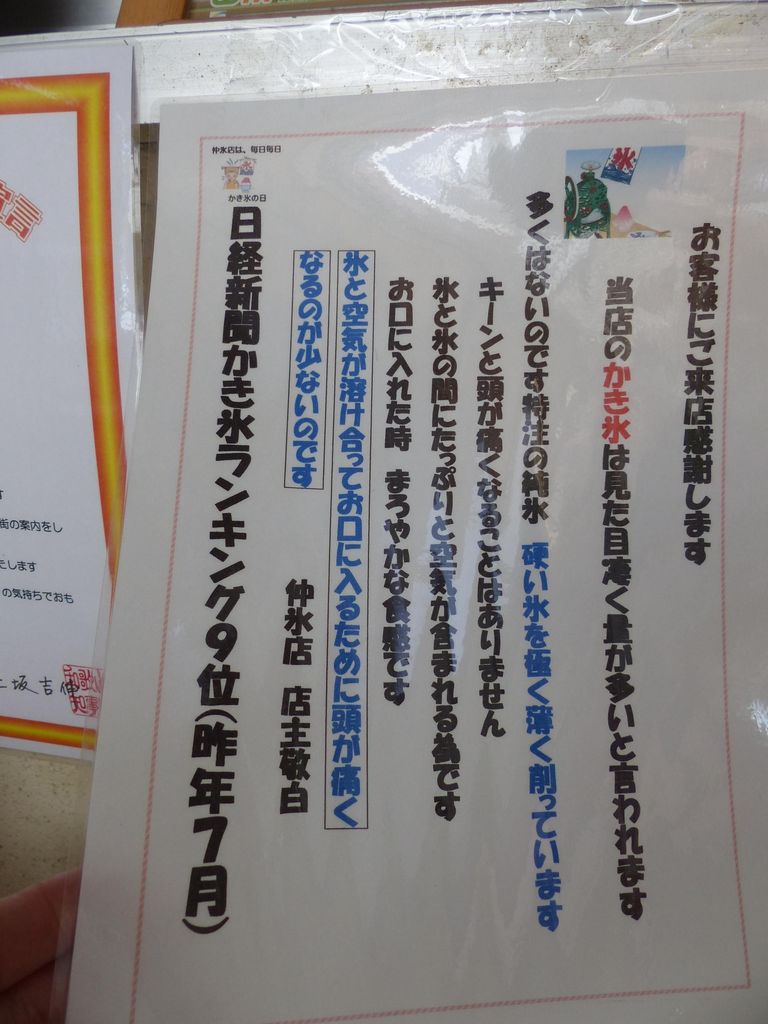 お客様にご来店感謝します
当店のかき氷は見た目凄く量が多いと言われます
多くはないのです特注の純氷 硬い氷を極く薄く削っています
キーンと頭が痛くなることはありません
氷と氷の間にたっぷりと空気が含まれる為です
お口に入れた時 まろやかな食感です
氷と空気が溶け合ってお口に入るために頭が痛く
なるのが少ないのです
仲氷店 店主敬白
日経新聞かき氷ランキング9位(昨年7月)
仲氷店は、毎日毎日
かき氷の日
氷
宣言
す
街の案内をし
たします
の気持ちでおも
坂吉伸